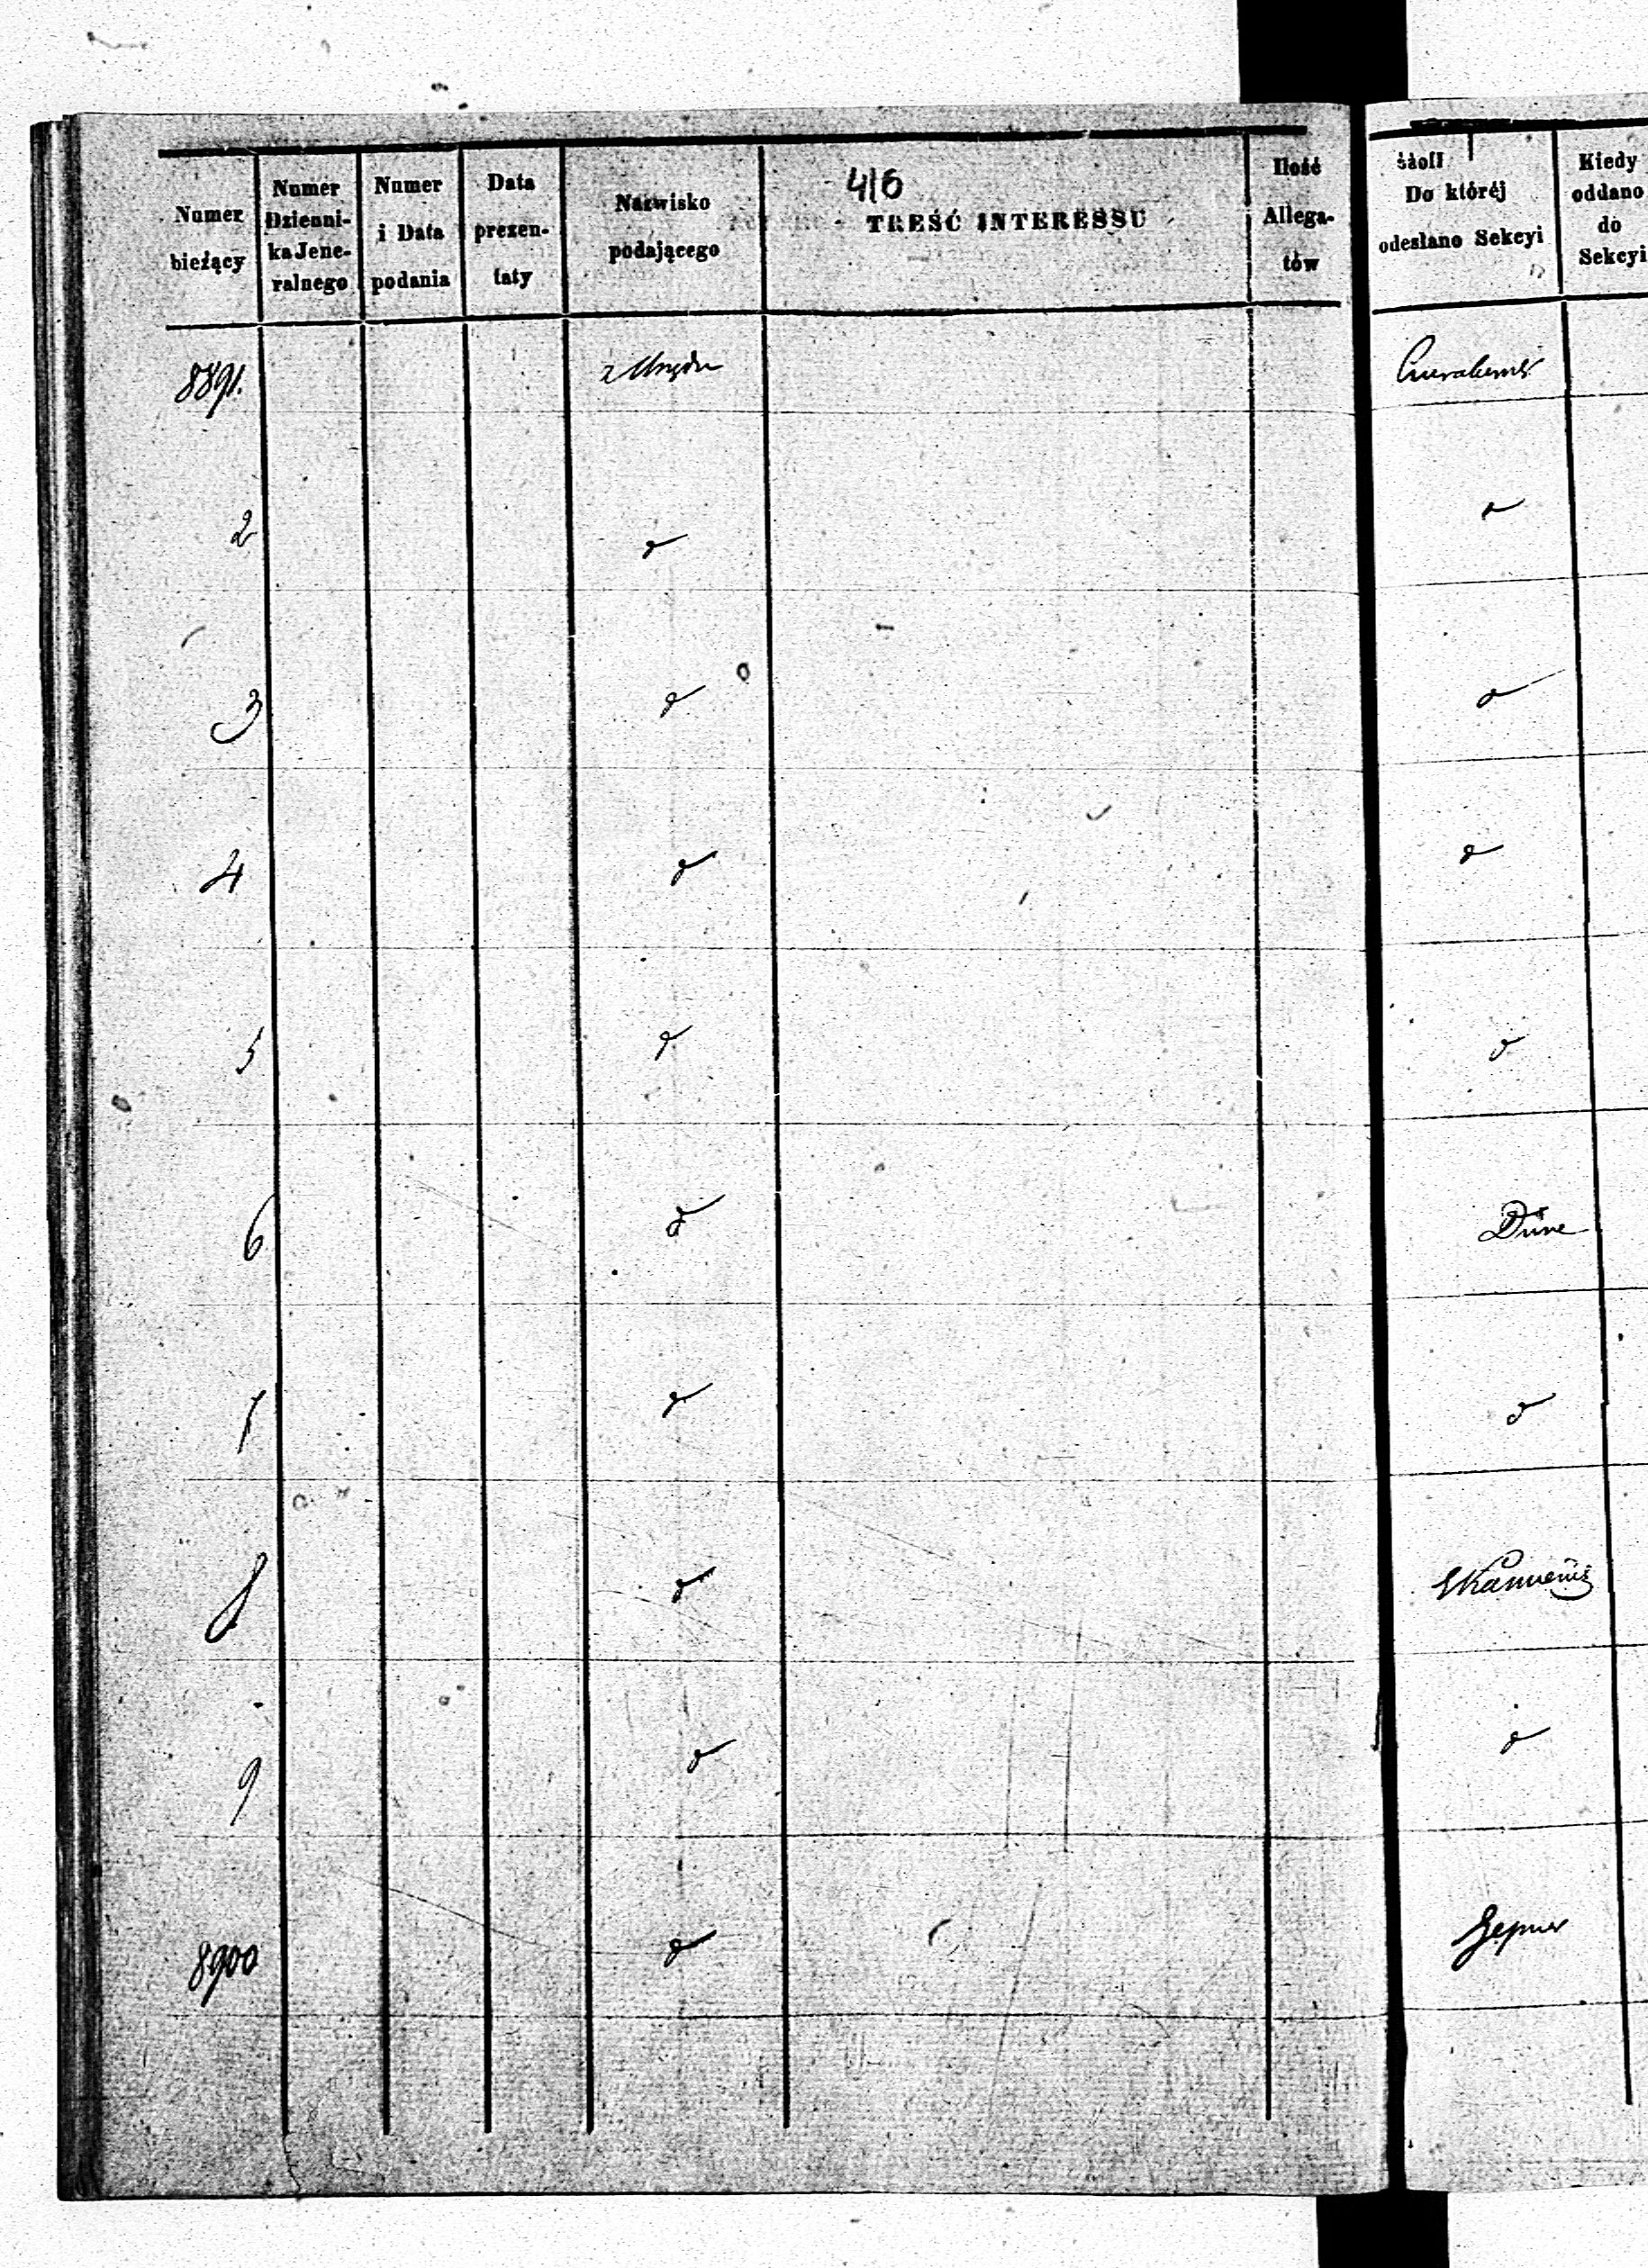 416
Numer bieżący
Numer Dzienni- ka Jene- ralnego
Numer i Data podania
Data prezen- taty
Nazwisko podającego
TREŚĆ INTERESSU
Ilość Allega- tów
Do któréj odesłano Sekcyi
Kiedy oddano do Sekcyi
8891. z Urzędu
2 d d
3 d d
4 d d
5 d d
6 d
7 d d
8 d
9 d d
8900 d